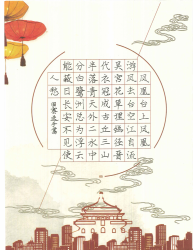 凤凰台上凤凰
游凤去台空江自流
吴宫花草埋幽径晋
代衣冠成古丘三山
半落青天外二水中
分白鹭洲总为浮云
能蔽日长安不见使
人愁